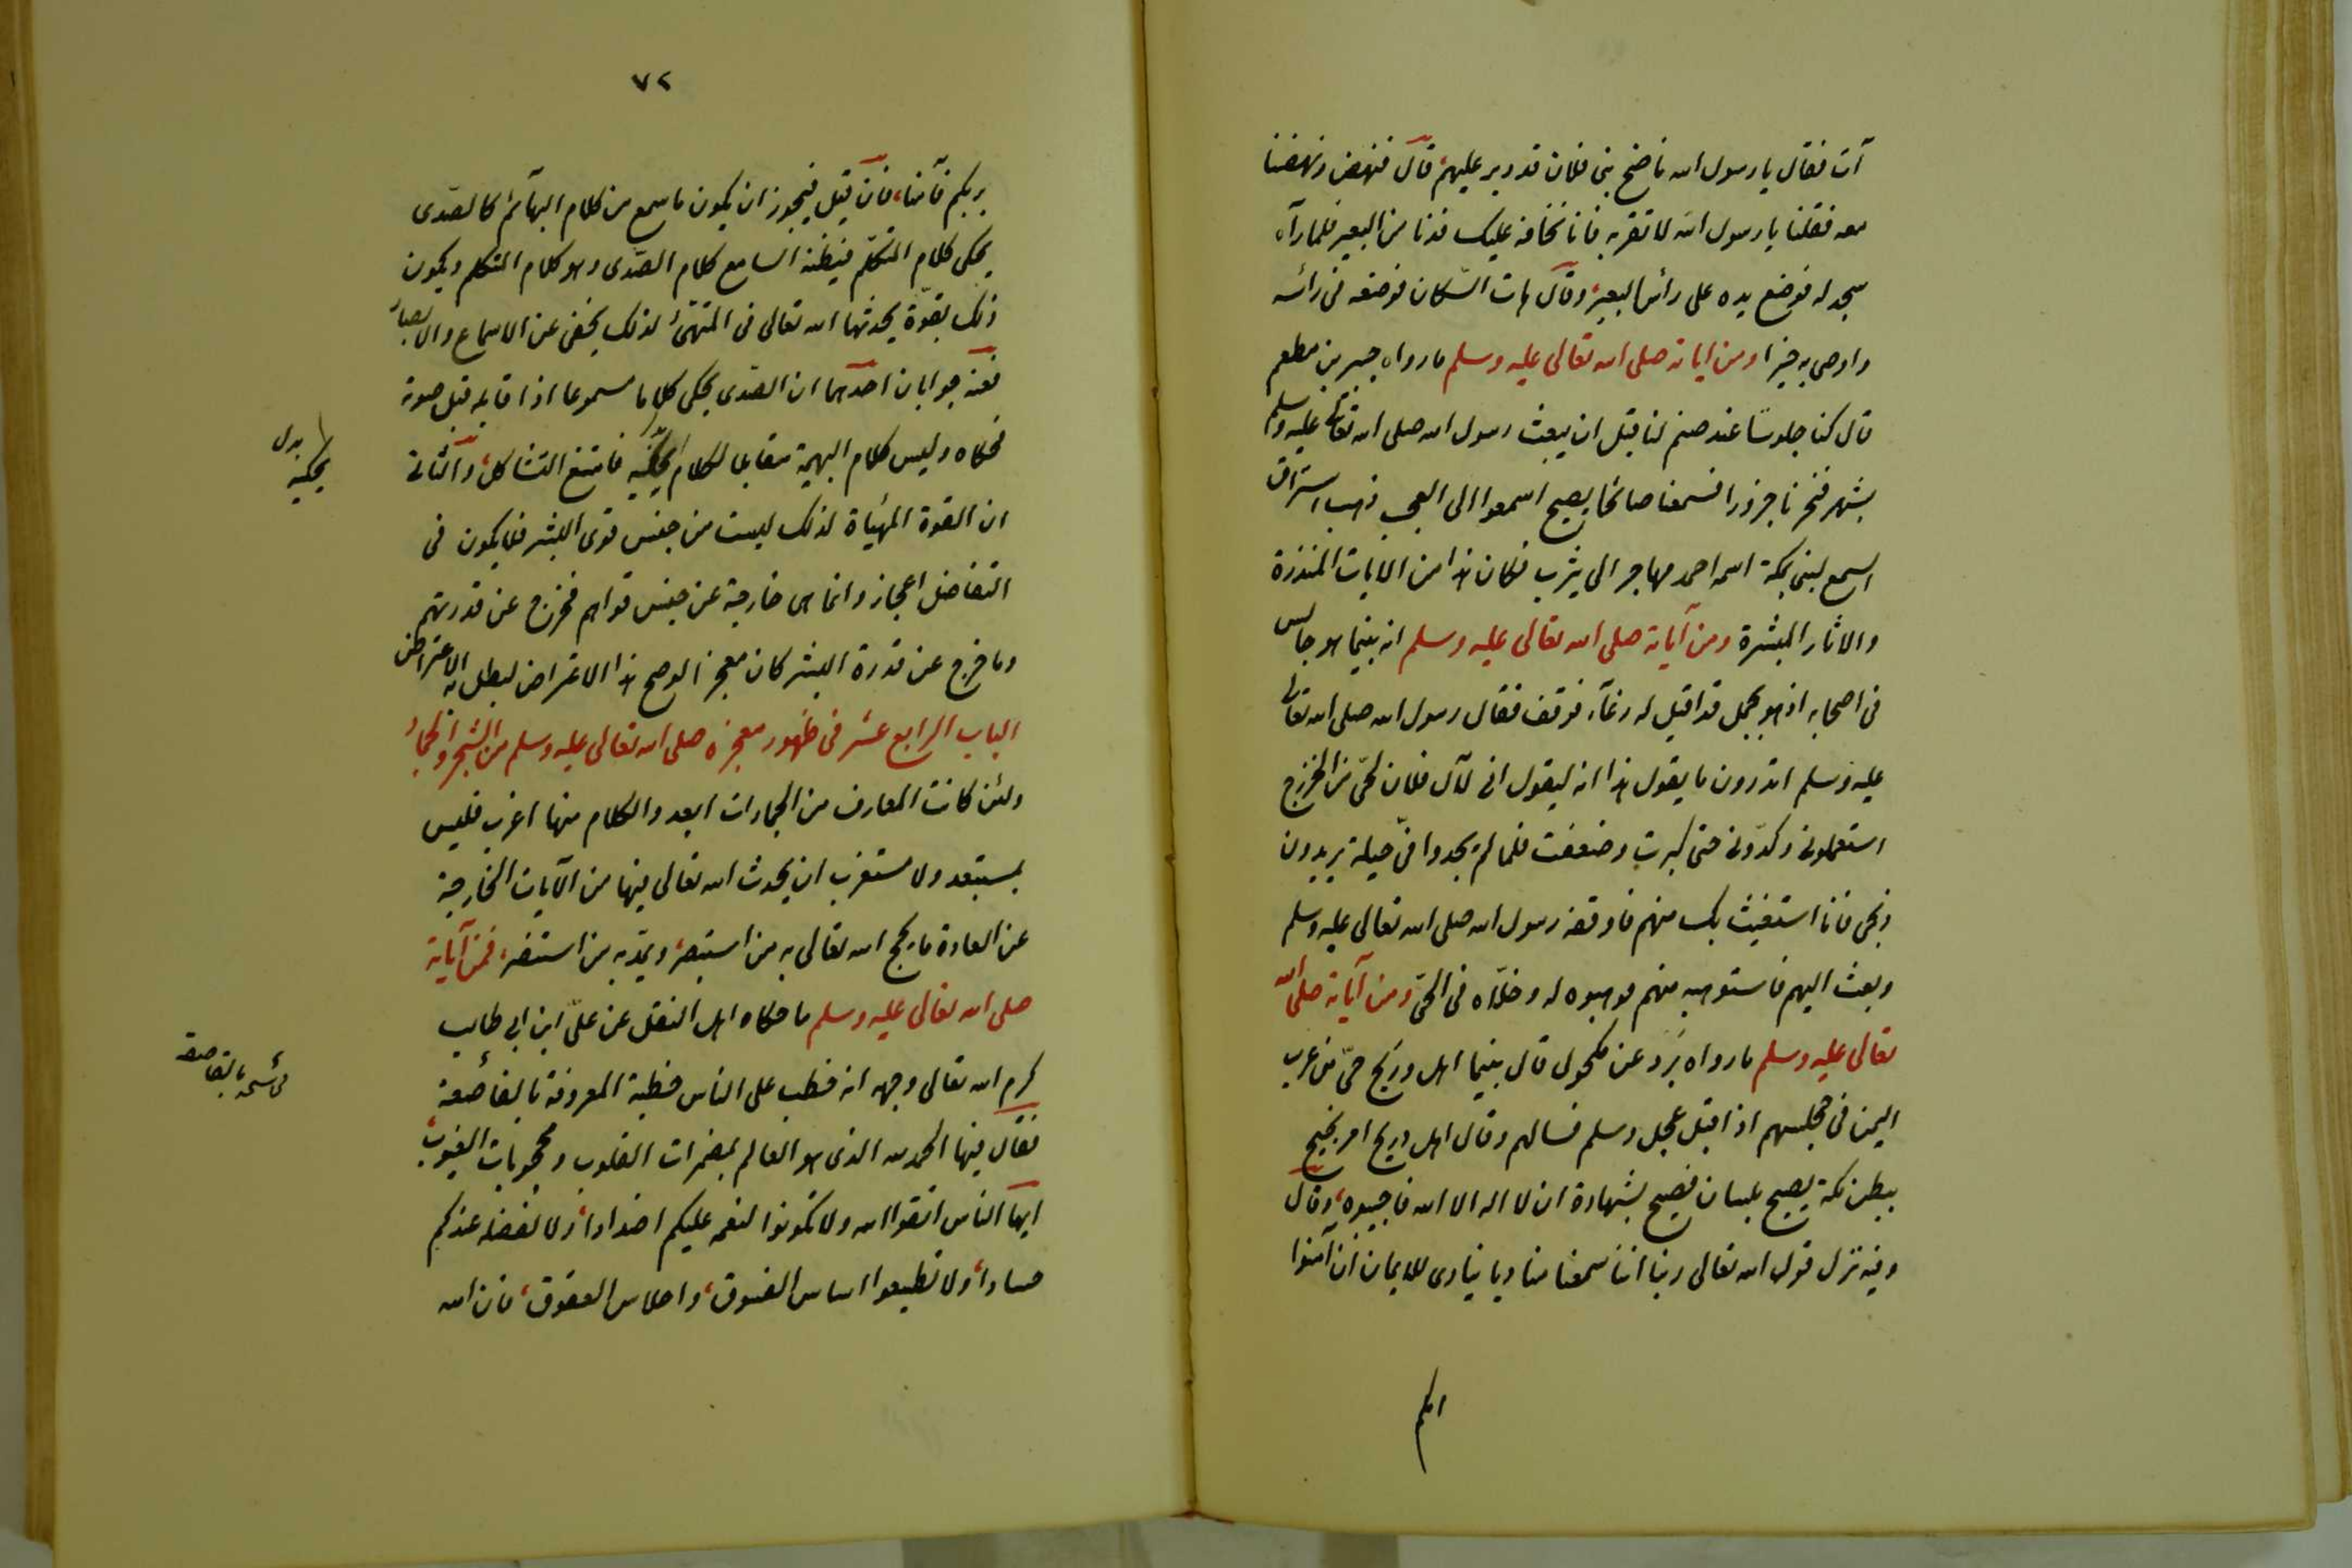 آت فقال يا رسول الله ناضح بنى فلان قد دبر عليهم، قال فنهض ونهضنا
معه فقلنا يا رسول الله لا تقربه فانا نخافه عليك فدنا من البعير فلما رآه
سجد له فوضع يده على رأس البعير، وقال هات السّكان فوضعه فى رأسه
واوصى به خيرا ومن اياته صلى الله تعالى عليه وسلم ما رواه جبير بن مطعم
قال كنا جلوسًا عند صنم لنا قبل ان يبعث رسول الله صلى الله تعالى عليه وسلم
بشهر فنحرنا جزورا فسمعنا صائحا يصيح اسمعوا الى العجب ذهب استراق
السمع لنبى بمكة اسمه احمد مهاجر الى يثرب فكان هذا من الايات المنذرة
والاثار المبشرة ومن آياته صلى الله تعالى عليه وسلم انه بينما هو جالس
فى اصحابه اذ هو بجمل قد اقبل له رغآء فوقف فقال رسول الله صلى الله تعالى
عليه وسلم اتدرون ما يقول هذا انه ليقول انى لآل فلان لحىّ من الخزرج
استعملونى وكدّونى حتى كبرت وضعفت فلما لم يجدوا فىّ حيلة يريدون
ونحرى فانا استغيث بك منهم فاوقفه رسول الله صلى الله تعالى عليه وسلم
وبعث اليهم فاستوهبه منهم فوهبوه له وخلّاه فى الحىّ ومن آياته صلى الله
تعالى عليه وسلم ما رواه بُرد عن مكحول قال بينما اهل وريح حىّ من عرب
اليمن فى مجلسهم اذ اقبل عجل وسلم فسالهم وقال اهل دريح امر نجيح
ببطن مكة يصيح بلسان فصيح بشهادة ان لا اله الا الله فاجيبوه، وقال
وفيه نزل قول الله تعالى ربنا اننا سمعنا مناديا ينادى للايمان ان آمنوا
٧٢
بربكم فآمنا، فان قيل فيجوز ان يكون ما سمع من كلام البهآئم كالصّدى
يحكى كلام المتكلّم فيظنه السامع كلام الصّدى وهو كلام المتكلم ويكون
ذلك بقوّة يحدثها الله تعالى فى المتهيّئ لذلك يخفى عن الاسماع والابصار
فعنه جوابان احدهما ان الصّدى يحكى كلاما مسموعا اذا قابله قبل صوته
فحكاه وليس كلام البهيمة مقابلا لكلام يحكيه فامتنع التشاكل، والثانى
ان القوة المهيأة لذلك ليست من جنس قوى البشر فلا يكون فى
التفاضل اعجاز وانما هى خارجة عن جنس قواهم فخرج عن قدرتهم
وما خرج عن قدرة البشر كان معجزا لو صح هذا الاعتراض لبطل به الاعتراض
الباب الرابع عشر فى ظهور معجزه صلى الله تعالى عليه وسلم من الشجر والجماد
ولئن كانت المعارف من الجمادات ابعد والكلام منها اغرب فليس
بمستبعد ولا مستغرب ان يحدث الله تعالى فيها من الآيات الخارجة
عن العادة ما يحج الله تعالى به من استبصر، ويمدّ به من استنصر، فمن آياته
صلى الله تعالى عليه وسلم ما حكاه اهل النقل عن علىّ ابن ابى طالب
كرم الله تعالى وجهه انه خطب على الناس خطبة المعروفة بالقاصعة
فقال فيها الحمد لله الذى هو العالم بمضمرات القلوب ومحجوبات الغيوب،
ايها الناس اتقوا الله ولا تكونوا لنعمه عليكم اضدادا، ولا لفضله عندكم
حسادا، ولا تطيعوا اساس الفسوق، واحلاس العقوق، فان الله
بدل
يحكيه
فى نسخه بالقاصعه